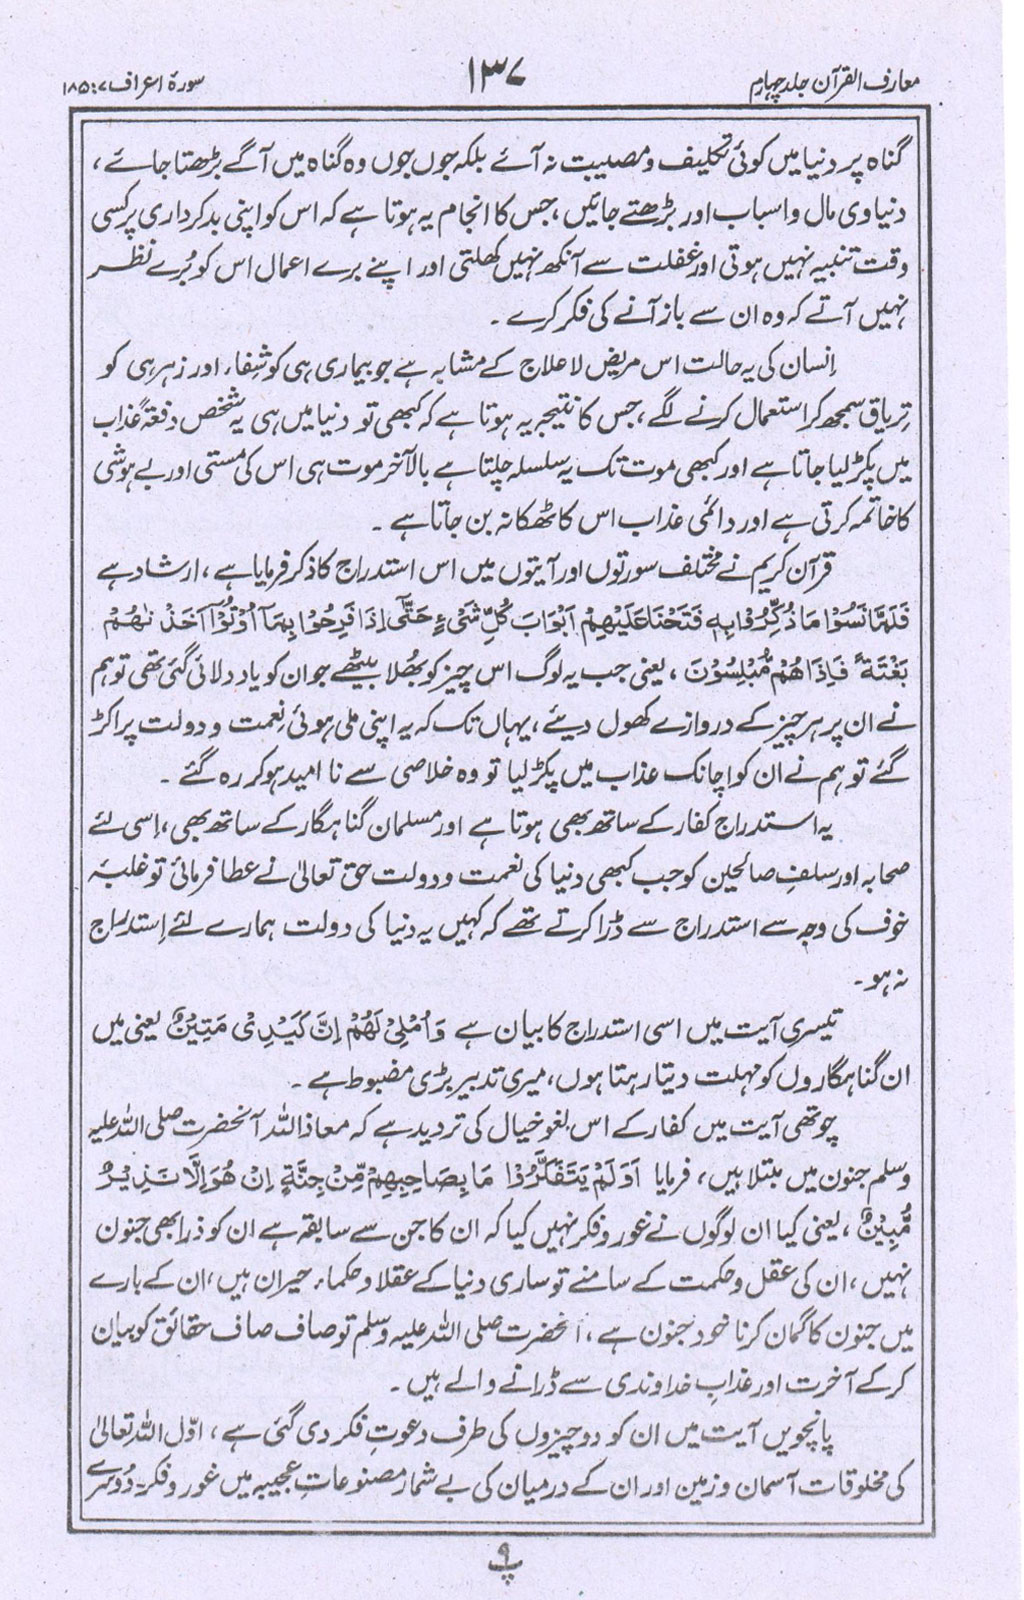 معارف القرآن جلد چہارم
۱۳۷
سورۂ اعراف ۷: ۱۸۵
گناہ پر دنیا میں کوئی تکلیف و مصیبت نہ آئے بلکہ جوں جوں وہ گناہ میں آگے بڑھتا جائے،
دنیاوی مال و اسباب اور بڑھتے جائیں، جس کا انجام یہ ہوتا ہے کہ اس کو اپنی بدکرداری پر کسی
وقت تنبیہ نہیں ہوتی اور غفلت سے آنکھ نہیں کھلتی اور اپنے برے اعمال اس کو بُرے نظر
نہیں آتے کہ وہ ان سے باز آنے کی فکر کرے۔
اِنسان کی یہ حالت اس مریض لاعلاج کے مشابہ ہے جو بیماری ہی کو شِفاء اور زہر ہی کو
تِریاق سمجھ کر استعمال کرنے لگے، جس کا نتیجہ یہ ہوتا ہے کہ کبھی تو دنیا میں ہی یہ شخص دفعۃً عذاب
میں پکڑ لیا جاتا ہے اور کبھی موت تک یہ سلسلہ چلتا ہے بالآخر موت ہی اس کی مستی اور بے ہوشی
کا خاتمہ کرتی ہے اور دائمی عذاب اس کا ٹھکانہ بن جاتا ہے۔
قرآن کریم نے مختلف سورتوں اور آیتوں میں اس استدراج کا ذکر فرمایا ہے، ارشاد ہے
فَلَمَّا نَسُوْا مَا ذُكِّرُوْا بِهٖ فَتَحْنَا عَلَيْهِمْ اَبْوَابَ كُلِّ شَیْءٍ حَتّٰٓى اِذَا فَرِحُوْا بِمَآ اُوْتُوْٓا اَخَذْنٰهُمْ
بَغْتَةً فَاِذَا هُمْ مُّبْلِسُوْنَ، یعنی جب یہ لوگ اس چیز کو بُھلا بیٹھے جو ان کو یاد دلائی گئی تھی تو ہم
نے ان پر ہر چیز کے دروازے کھول دیئے، یہاں تک کہ یہ اپنی ملی ہوئی نِعمت و دولت پر اکڑ
گئے تو ہم نے ان کو اچانک عذاب میں پکڑ لیا تو وہ خلاصی سے نا امید ہو کر رہ گئے۔
یہ استدراج کفار کے ساتھ بھی ہوتا ہے اور مسلمان گناہگار کے ساتھ بھی، اِسی لئے
صحابہ اور سلفِ صالحین کو جب کبھی دنیا کی نعمت و دولت حق تعالیٰ نے عطا فرمائی تو غلبۂ
خوف کی وجہ سے استدراج سے ڈرا کرتے تھے کہ کہیں یہ دنیا کی دولت ہمارے لئے اِستدراج
نہ ہو۔
تیسری آیت میں اسی استدراج کا بیان ہے وَاُمْلِیْ لَهُمْ اِنَّ كَيْدِیْ مَتِيْنٌ یعنی میں
ان گناہگاروں کو مہلت دیتا رہتا ہوں، میری تدبیر بڑی مضبوط ہے۔
چوتھی آیت میں کفار کے اس لغو خیال کی تردید ہے کہ معاذ اللہ آنحضرت صلی اللہ علیہ
وسلم جنون میں مبتلا ہیں، فرمایا اَوَلَمْ يَتَفَكَّرُوْا مَا بِصَاحِبِهِمْ مِّنْ جِنَّةٍ اِنْ هُوَ اِلَّا نَذِيْرٌ
مُّبِيْنٌ، یعنی کیا ان لوگوں نے غور و فکر نہیں کیا کہ ان کا جن سے سابقہ ہے ان کو ذرا بھی جنون
نہیں، ان کی عقل و حکمت کے سامنے تو ساری دنیا کے عقلا و حکماء حیران ہیں، ان کے بارے
میں جنون کا گمان کرنا خود جنون ہے، آنحضرت صلی اللہ علیہ وسلم تو صاف صاف حقائق کو بیان
کر کے آخرت اور عذابِ خداوندی سے ڈرانے والے ہیں۔
پانچویں آیت میں ان کو دو چیزوں کی طرف دعوتِ فکر دی گئی ہے، اوّل اللہ تعالیٰ
کی مخلوقات آسمان و زمین اور ان کے درمیان کی بے شمار مصنوعاتِ عجیبہ میں غور و فکر۔ دُوسرے
پ ۹